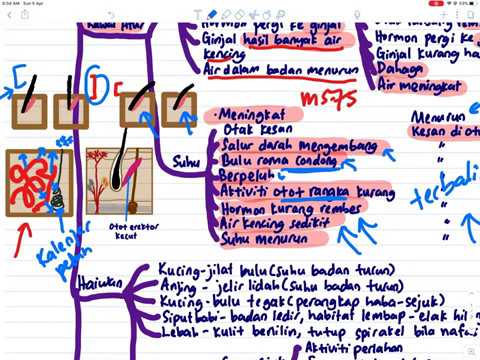 5:04 AM Sun 5 Apr
Kawal Atur
Hormon pergi ke ginjal
Ginjal hasil banyak air
kencing
Air dalam badan menurun
Hormon pergi ke
Ginjal kurang ha
Dahaga
Air meningkat
m575
Suhu
·Meningkat
Otak kesan
Salur darah mengembang
Bulu roma condong
Berpeluh
Aktiviti otot rangka kurang
Hormon kurang rembes
Air kencing sedikit
Suhu menurun
Menurun
Kesan di ot
"
"
terbali
"
"
Kalenjar
peluh
Otot erektor
kecut
Haiwan
Kucing-jilat bulu (suhu badan turun)
Anjing - jelir lidah (suhu badan turun)
Kucing-bulu tegak (perangkap haba-sejuk)
Siput babi- badan ledir, habitat lembap-elak hil
Lebah- kulit berilin, tutup spirakel bila nafas
Aktiviti perlahan